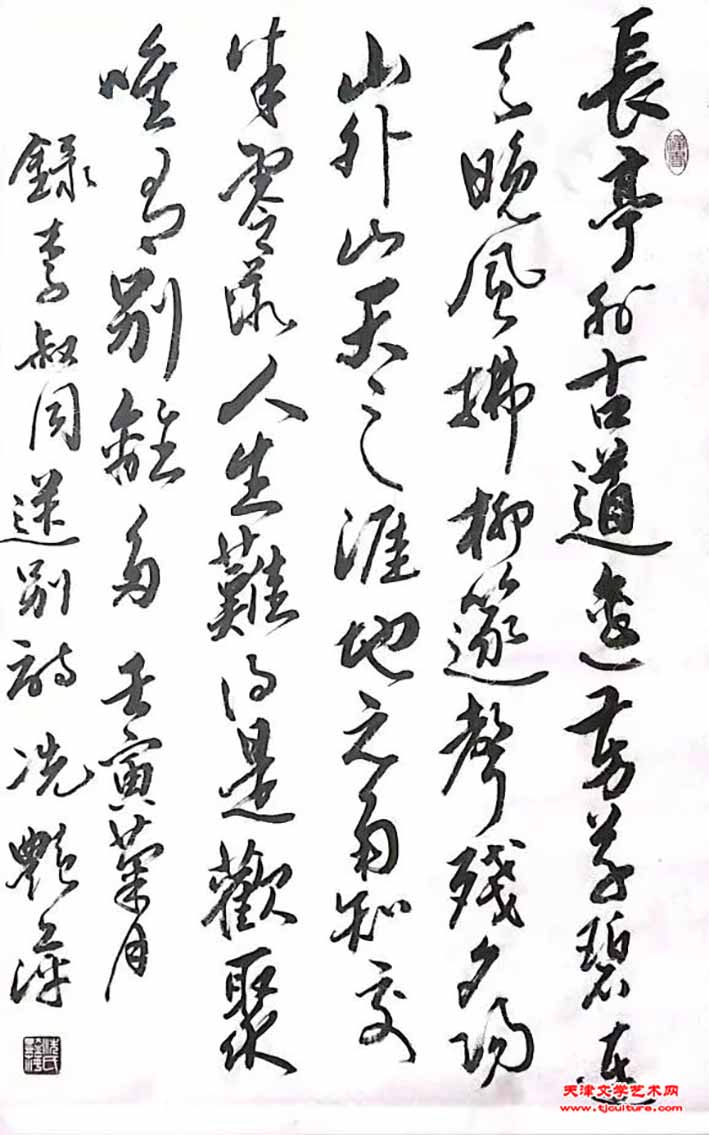 長亭外古道邊芳草碧連
天晚風拂柳篴聲殘夕陽
山外山天之涯地之角知交
半零落人生難得是歡聚
唯有別離多 壬寅菊月
錄李叔同送別詩 冼艷萍
天津文学艺术网
www.tjculture.com